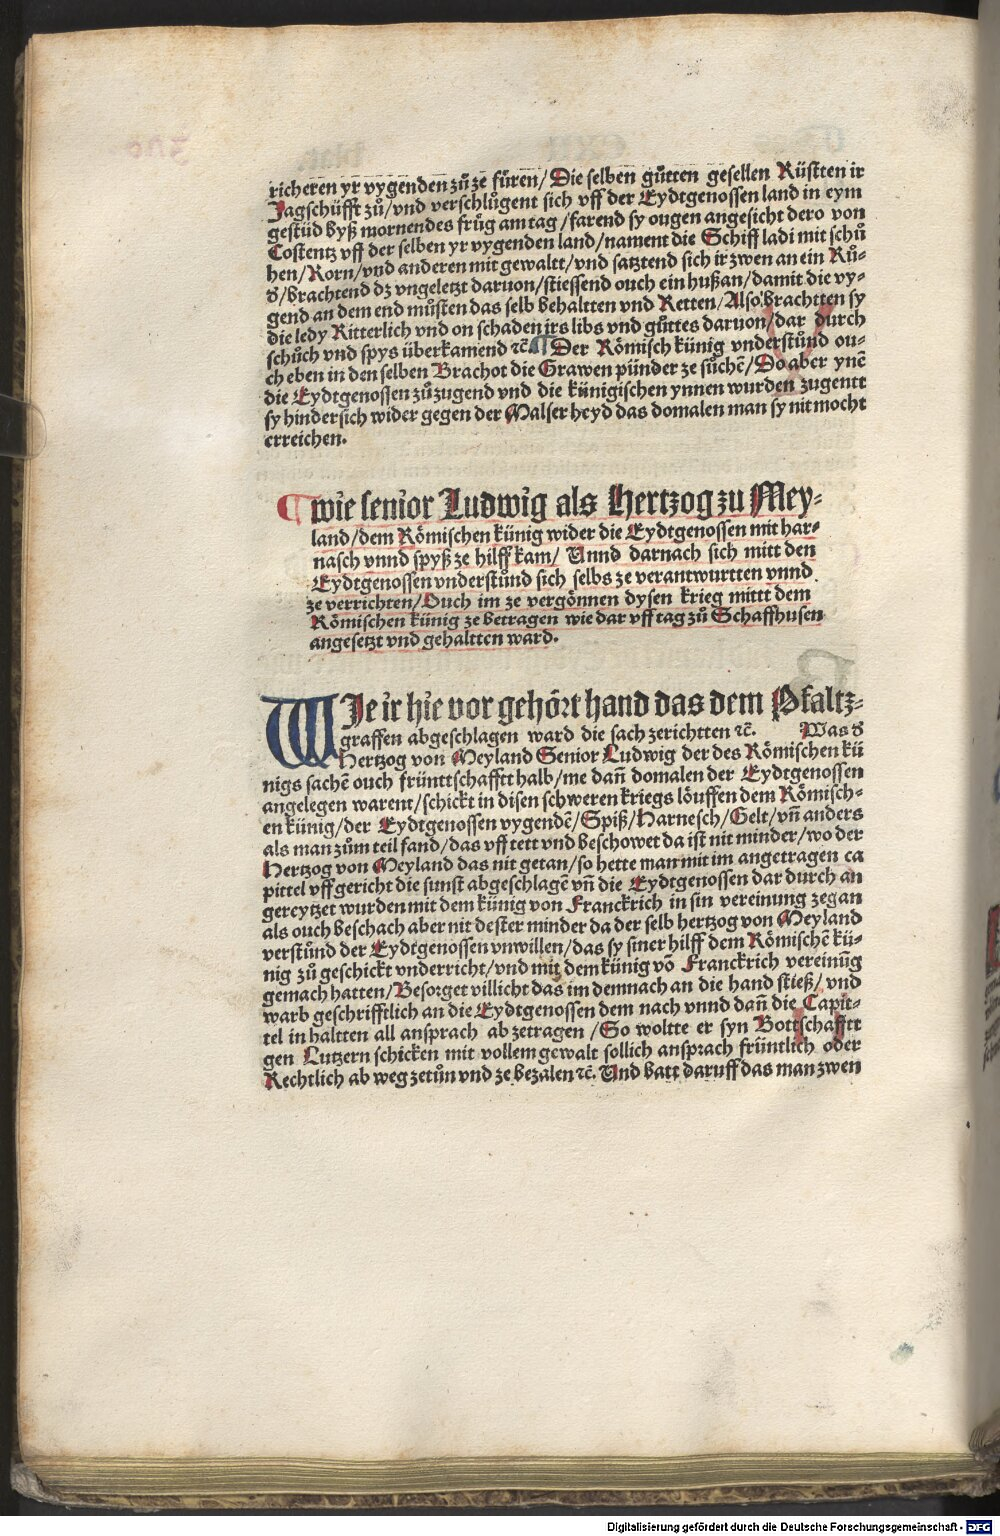 richeren yr vygenden zů ze füren/Die selben gůtten gesellen Rüstten ir
Jagschüfft zů/vnd verschlůgent sich vff der Eydtgenossen land in eym
gestüd byß mornendes frůg am tag/farend sy ougen angesicht dero von
Costentz vff der selben yr vygenden land/nament die Schiff ladi mit schů
hen/Korn/vnd anderen mit gewaltt/vnd satztend sich ir zwen an ein Rů-
d̕/brachtend dz vngeletzt daruon/stiessend ouch ein hußan/damit die vy-
gend an dem end můsten das selb behaltten vnd Retten/Also brachtten sy
die ledy Ritterlich vnd on schaden irs libs vnd gůttes daruon/dar durch
schůch vnd spys überkamend ⁊c̄. ¶ Der Römisch künig vnderstůnd ou-
ch eben in den selben Brachot die Grawen pünder ze sůchē/Do aber ynē
die Eydtgenossen zůzugend vnd die künigischen ynnen wurden zugentt
sy hindersich wider gegen der Malser heyd das domalen man sy nit mocht
erreichen.
¶ wie senior Ludwig als Hertzog zu Mey-
land/dem Römischen künig wider die Eydtgenossen mit har-
nasch vnnd spyß ze hilff kam/ Vnnd darnach sich mitt den
Eydtgenossen vnderstůnd sich selbs ze verantwurtten vnnd
ze verrichten/Ouch im ze vergönnen dysen krieg mittt dem
Römischen künig ze betragen wie dar vff tag zů Schaffhusen
angesetzt vnd gehaltten ward.
WJe ir hie vor gehört hand das dem Pfaltz-
graffen abgeschlagen ward die sach zerichtten ⁊c̄. Was d̕
Hertzog von Meyland Senior Ludwig der des Römischen kü
nigs sachē ouch frünttschafftt halb/me dañ domalen der Eydtgenossen
angelegen warent/schickt in disen schweren kriegs löuffen dem Römisch-
en künig/der Eydtgenossen vygendē/Spiß/Harnesch/Gelt/vñ anders
als man zům teil fand/das vff tett vnd beschowet da ist nit minder/wo der
Hertzog von Meyland das nit getan/so hette man mit im angetragen ca
pittel vff gericht die sunst abgeschlagē vñ die Eydtgenossen dar durch an
gereytzet wurden mit dem künig von Franckrich in sin vereinung ze gan
als ouch beschach aber nit dester minder da der selb hertzog von Meyland
verstůnd der Eydtgenossen vnwillen/das sy siner hilff dem Römischē kü-
nig zů geschickt vnderricht/vnd mit dem künig vō Franckrich vereinūg
gemach hatten/Besorget villicht das im demnach an die hand stieß/vnd
warb geschrifftlich an die Eydtgenossen dem nach vnnd dañ die Capit-
tel in haltten all ansprach ab zetragen/So woltte er syn Bottschafftt
gen Lutzern schicken mit vollem gewalt sollich ansprach früntlich oder
Rechtlich ab weg zetůn vnd ze bezalen ⁊c̄. Vnd batt daruff das man zwen
Digitalisierung gefördert durch die Deutsche Forschungsgemeinschaft - DFG